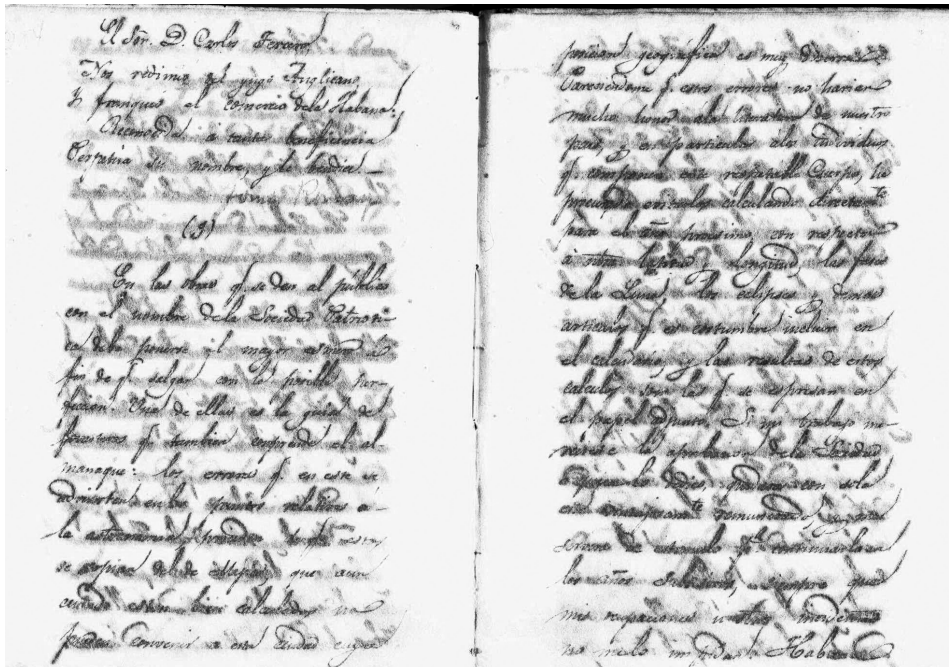 El Sōr. D. Carlos Tercero,
Nos redimio del yugo Anglicano
Y franqueó el comercio de la Habana:
Reconocida a tanta beneficencia
Perpetúa su nombre, y le bendice
(3)
En las obras q. se dan al público
con el nombre de la Sociedad Patrioti-
ca debe ponerse el mayor esmero a
fin de q. salgan con la posible per-
feccion. Una de ellas es la guia de
forasteros q. tambien comprende el al-
manaque: los errores q. en este se
advierten en los puntos relativos a
la astronomia, proceden de q.
se copian del de que aun
cuando estén bien calculados no
pueden convenir a esta ciudad cuya
posicion geográfica es muy diversa
Pareciendome q. estos errores no harian
mucho honor a la literatura de nuestro
pais, y en particular a los individuos
q. componen este respetable Cuerpo, he
procurado calculando directam.te
para el año proximo, con respecto
a nuestra latitud y longitud, las fases
de la Luna, los eclipses y demas
articulos q. es costumbre incluir en
el calendario, y las resultas de estos
calculos son las q. se espresan en
el papel adjunto. Si mi trabajo me-
reciese la aprobacion de la Sociedad
a quien lo dedico, quedaré con solo
eso remunerado, y
servirá de estimulo p.a continuarlo en
los años siempre que
mis ocupaciones u otros
no me lo impidan. Habana